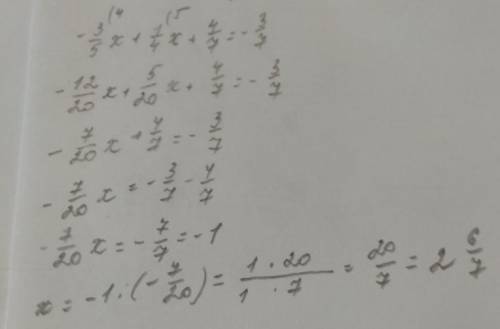 -3/5^(4 x + 1/4^(5 x + 4/7 = -3/7
-12/20 x + 5/20 x + 4/7 = -3/7
-7/20 x + 4/7 = -3/7
-7/20 x = -3/7 - 4/7
-7/20 x = -7/7 = -1
x = -1 : (-7/20) = 1 · 20 / 1 · 7 = 20/7 = 2 6/7